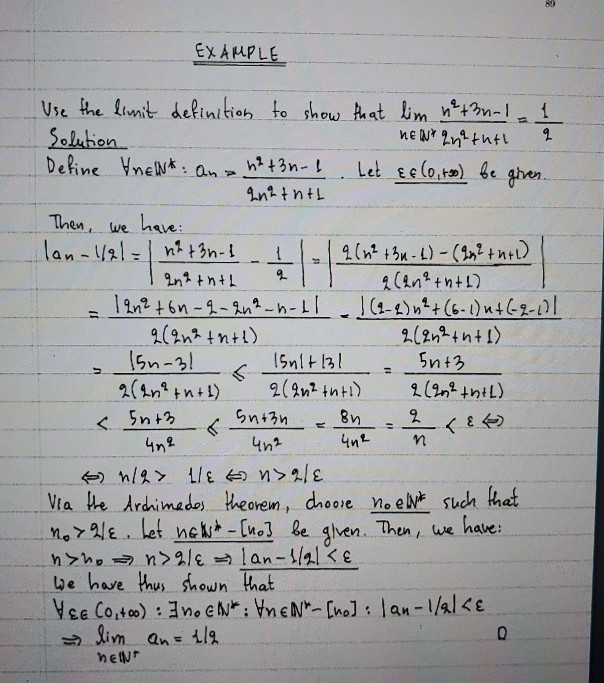 89
EXAMPLE
Use the limit definition to show that lim n∈ℕ* (n²+3n-1)/(2n²+n+1) = 1/2
Solution
Define ∀n∈ℕ*: an = (n²+3n-1)/(2n²+n+1). Let ε∈(0,+∞) be given.
Then, we have:
|an - 1/2| = |(n²+3n-1)/(2n²+n+1) - 1/2| = |(2(n²+3n-1)-(2n²+n+1))/(2(2n²+n+1))|
= |2n²+6n-2-2n²-n-1|/(2(2n²+n+1)) = |(2-2)n²+(6-1)n+(-2-1)|/(2(2n²+n+1))
= |5n-3|/(2(2n²+n+1)) ≤ (|5n|+|3|)/(2(2n²+n+1)) = (5n+3)/(2(2n²+n+1))
< (5n+3)/(4n²) ≤ (5n+3n)/(4n²) = 8n/(4n²) = 2/n < ε ⇔
⇔ n/2 > 1/ε ⇔ n>2/ε
Via the Archimedes theorem, choose n₀∈ℕ* such that
n₀>2/ε. Let n∈ℕ*-[n₀] be given. Then, we have:
n>n₀ ⇒ n>2/ε ⇒ |an-1/2|<ε
We have thus shown that
∀ε∈(0,+∞): ∃n₀∈ℕ*: ∀n∈ℕ*-[n₀]: |an-1/2|<ε
⇒ lim n∈ℕ* an = 1/2 □